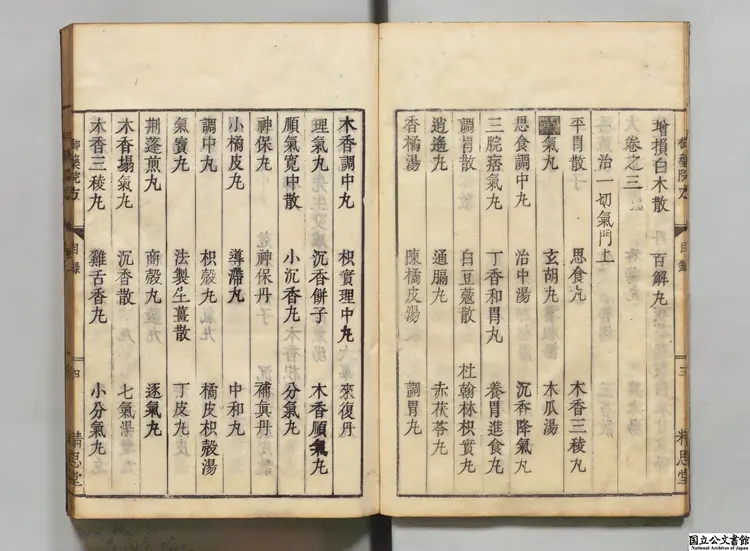 增損白木散 百解丸
卷之三
治一切氣門上
平胃散 思食丸 木香三稜丸
氣丸 玄胡丸 木瓜湯
思食調中丸 治中湯 沉香降氣丸
三脘痞氣丸 丁香和胃丸 養胃進食丸
調胃散 白豆蔻散 杜翰林枳實丸
逍遙丸 通膈丸 赤茯苓丸
香橘湯 陳橘皮湯 調胃丸
御藥院方 目録 三 精思堂
木香調中丸 枳實理中丸 來復丹
理氣丸 沉香餅子 木香順氣丸
順氣寬中散 小沉香丸 分氣丸
神保丸 神保丹 補真丹
小橘皮丸 導滯丸 中和丸
調中丸 枳殼丸 橘皮枳殼湯
氣寶丸 法製生薑散 丁皮丸
荆蓬煎丸 商殼丸 逐氣丸
木香塌氣丸 沉香散 七氣湯
木香三稜丸 雞舌香丸 小分氣丸
御藥院方 目録 四 精思堂
国立公文書館
National Archives of Japan